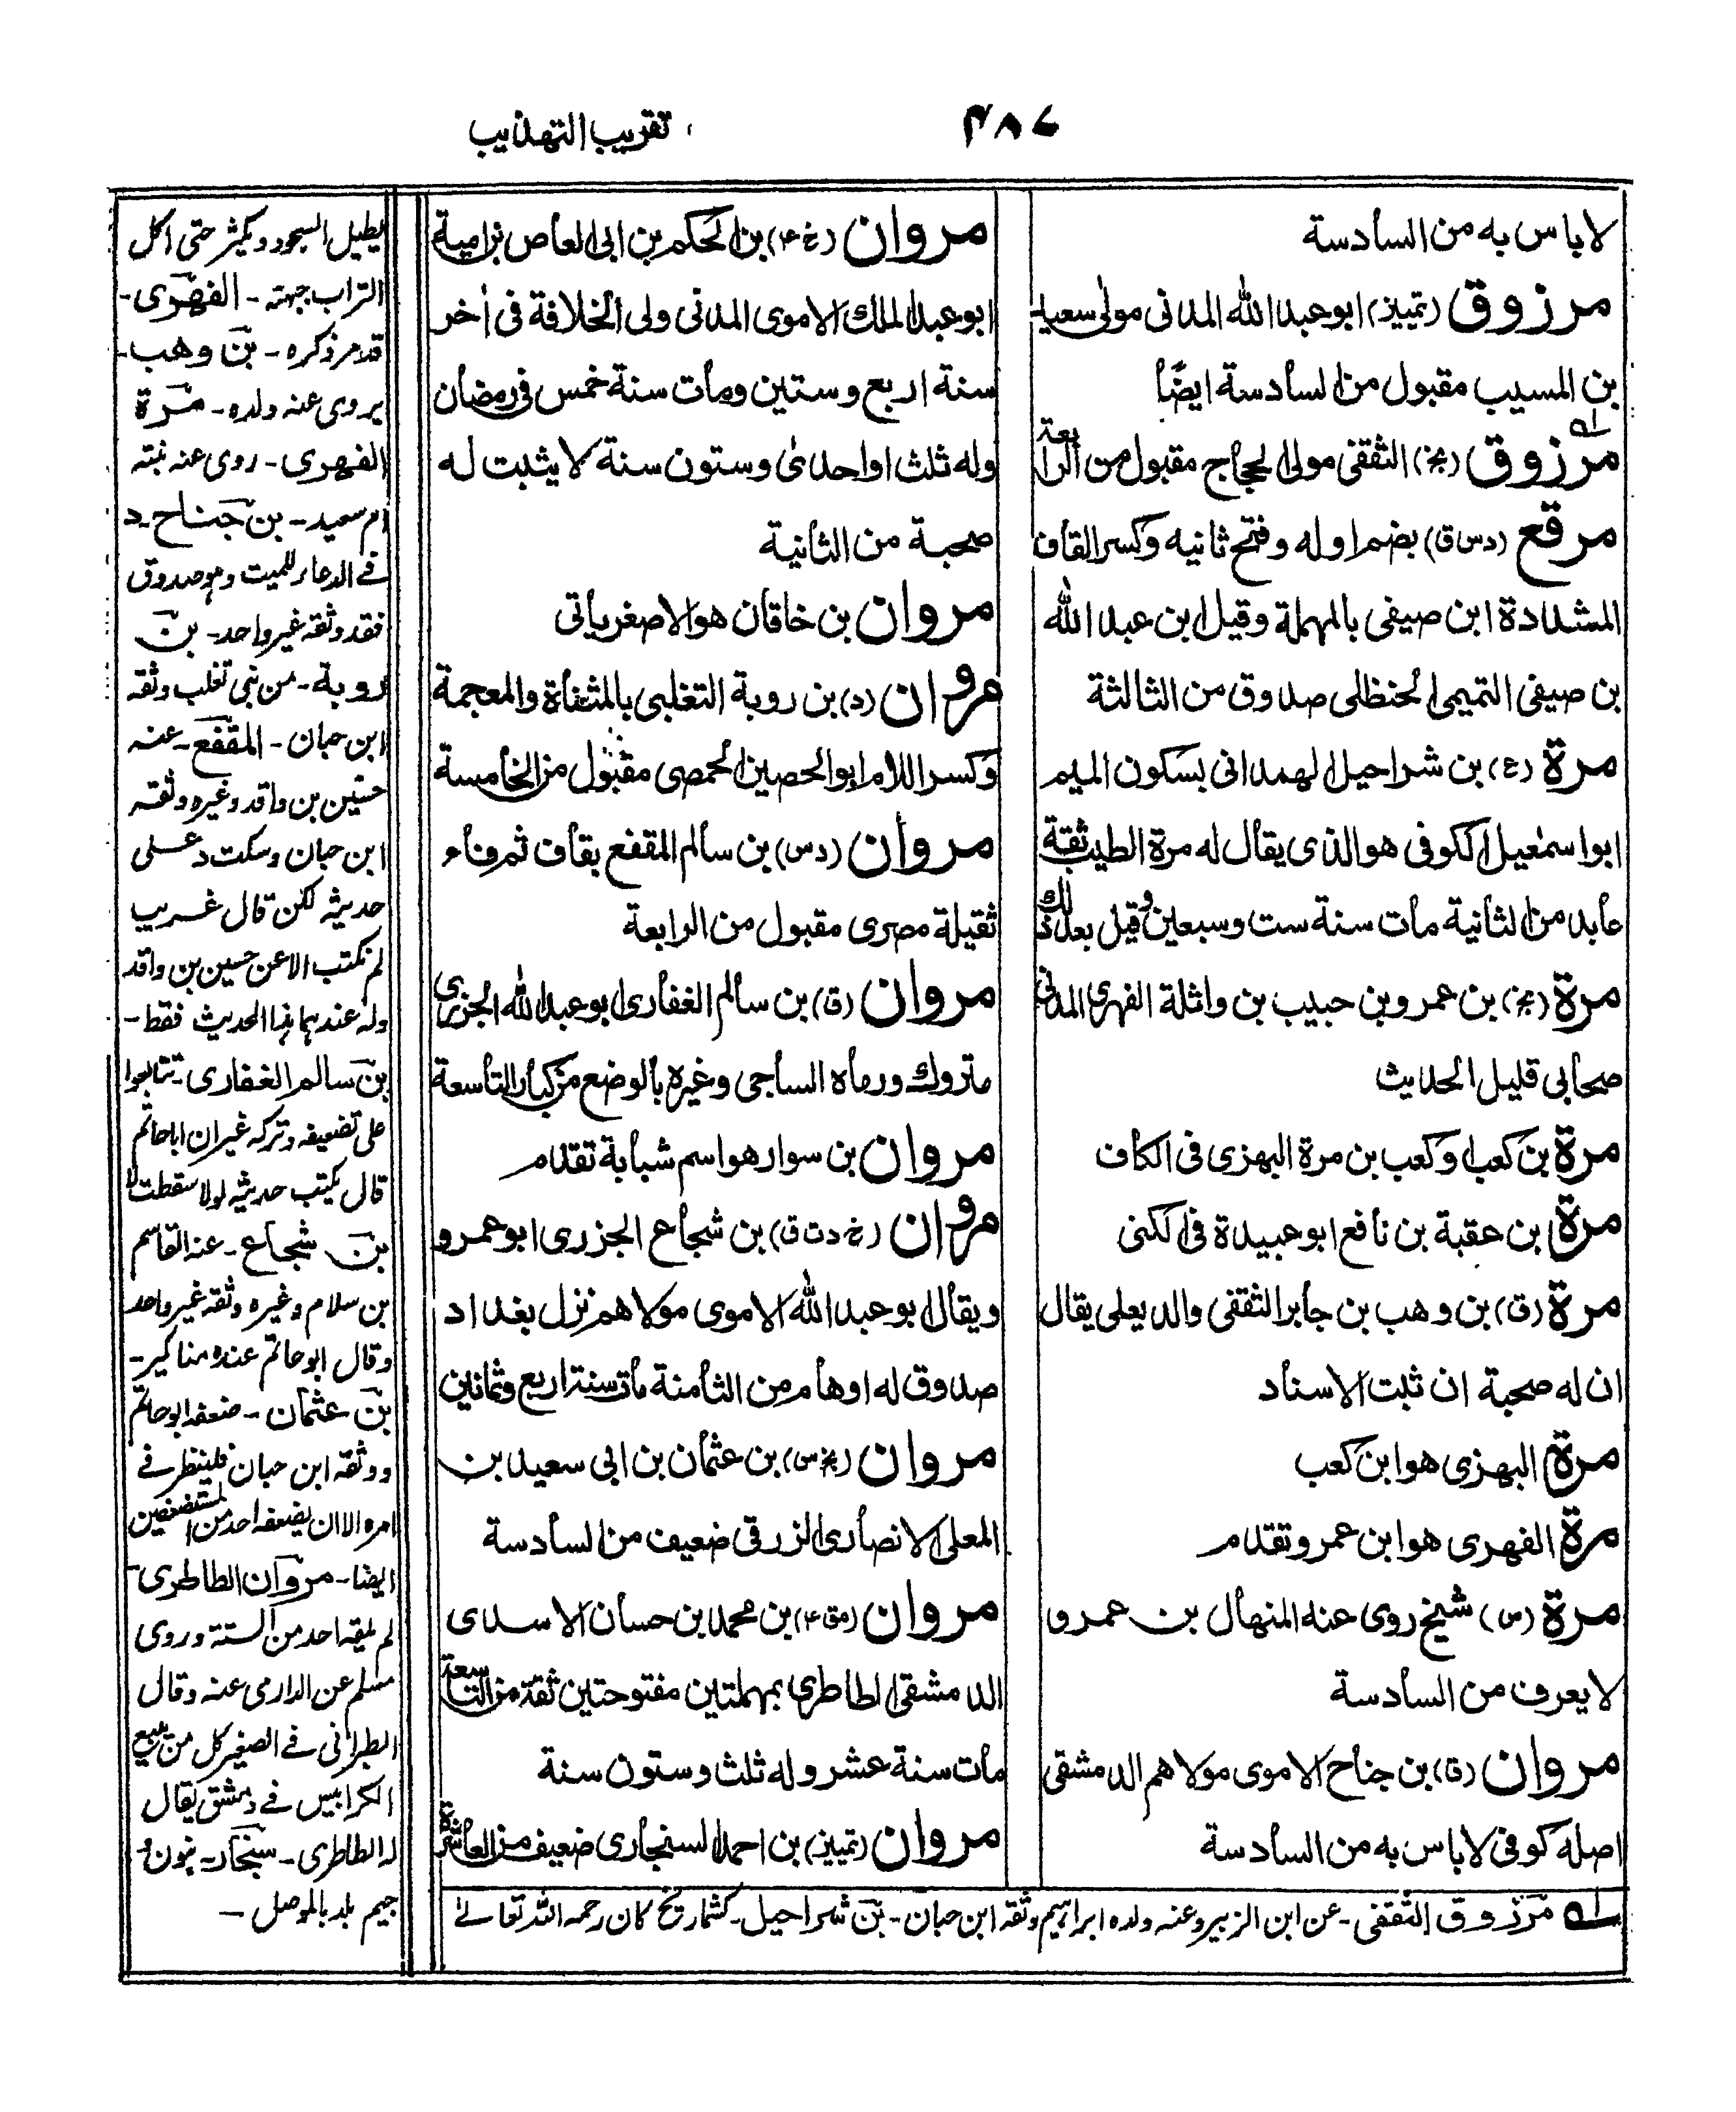 ۴۸۷
تقريب التهذيب
لا باس به من السادسة
مرزوق (تمييز) ابو عبد الله المدنى مولى سعيد
بن المسيب مقبول من السادسة ايضًا
مرزوق (بخ) الثقفى مولى الحجاج مقبول من الرابعة
مرقع (د س ق) بضم اوله وفتح ثانيه وكسر القاف
المشددة ابن صيفى بالمهملة وقيل ابن عبد الله
بن صيفى التميمى الحنظلى صدوق من الثالثة
مرة (ع) بن شراحيل الهمدانى بسكون الميم
ابو اسمعيل الكوفى هو الذى يقال له مرة الطيب ثقة
عابد من الثانية مات سنة ست وسبعين وقيل بعد ذلك
مرة (بخ) بن عمرو بن حبيب بن واثلة الفهرى المدنى
صحابى قليل الحديث
مرة بن كعب او كعب بن مرة البهزى فى الكاف
مرة بن عقبة بن نافع ابو عبيدة فى الكنى
مرة (ق) بن وهب بن جابر الثقفى والد يعلى يقال
ان له صحبة ان ثبت الاسناد
مرة البهزى هو ابن كعب
مرة الفهرى هو ابن عمرو تقدم
مرة (س) شيخ روى عنه المنهال بن عمرو
لا يعرف من السادسة
مروان (ق) بن جناح الاموى مولاهم الدمشقى
اصله كوفى لا باس به من السادسة
مروان (خ ۴) بن الحكم بن ابى العاص بن امية
ابو عبد الملك الاموى المدنى ولى الخلافة فى اخر
سنة اربع وستين ومات سنة خمس فى رمضان
وله ثلث او احدى وستون سنة لا يثبت له
صحبة من الثانية
مروان بن خاقان هو الاصغر ياتى
مروان (د) بن روبة التغلبى بالمثناة والمعجمة
وكسر اللام ابو الحصين الحمصى مقبول من الخامسة
مروان (د س) بن سالم المقفع بقاف ثم فاء
ثقيلة مصرى مقبول من الرابعة
مروان (ق) بن سالم الغفارى ابو عبد الله الجزرى
متروك ورماه الساجى وغيره بالوضع من كبار التاسعة
مروان بن سوار هو اسم شبابة تقدم
مروان (خ د ت ق) بن شجاع الجزرى ابو عمرو
ويقال ابو عبد الله الاموى مولاهم نزل بغداد
صدوق له اوهام من الثامنة مات سنة اربع وثمانين
مروان (بخ س) بن عثمان بن ابى سعيد بن
المعلى الانصارى الزرقى ضعيف من السادسة
مروان (مق ۴) بن محمد بن حسان الاسدى
الدمشقى الطاطرى بمهملتين مفتوحتين ثقة من التاسعة
مات سنة عشر وله ثلث وستون سنة
مروان (تمييز) بن احمد السنجارى ضعيف من العاشرة
يطيل السجود ويكثر حتى اكل
التراب جبهته - الفهرى -
قد مر ذكره - بن وهب -
يروى عنه ولده - مرة
الفهرى - روى عنه بنته
ام سعيد - بن جناح - د
فى الدعاء للميت وهو صدوق
فقد وثقه غير واحد - بن
روبة - من بنى تغلب وثقه
ابن حبان - المقفع - عنه
حسين بن واقد وغيره وثقه
ابن حبان وسكت د على
حديثه لكن قال غريب
لم نكتب الا عن حسين بن واقد
وله عندهما هذا الحديث فقط -
بن سالم الغفارى - تتابعوا
على تضعيفه وتركه غير ان ابا حاتم
قال يكتب حديثه لولا سقطت لا
بن شجاع - عنه القاسم
بن سلام وغيره وثقه غير واحد
وقال ابو حاتم عنده مناكير -
بن عثمان - ضعفه ابو حاتم
ووثقه ابن حبان فلينظر فى
امره الا ان يضعفه احد من المستضعفين
ايضا - مروان الطاطرى -
لم يلقه احد من الستة وروى
مسلم عن الدارمى عنه وقال
الطبرانى فى الصغير كل من يبيع
الكرابيس فى دمشق يقال
له الطاطرى - سنجار - بنون و
جيم بلد بالموصل -
له مرزوق الثقفى - عن ابن الزبير وعنه ولده ابراهيم وثقه ابن حبان - بن شراحيل - كشماريخ كان رحمه الله تعالى